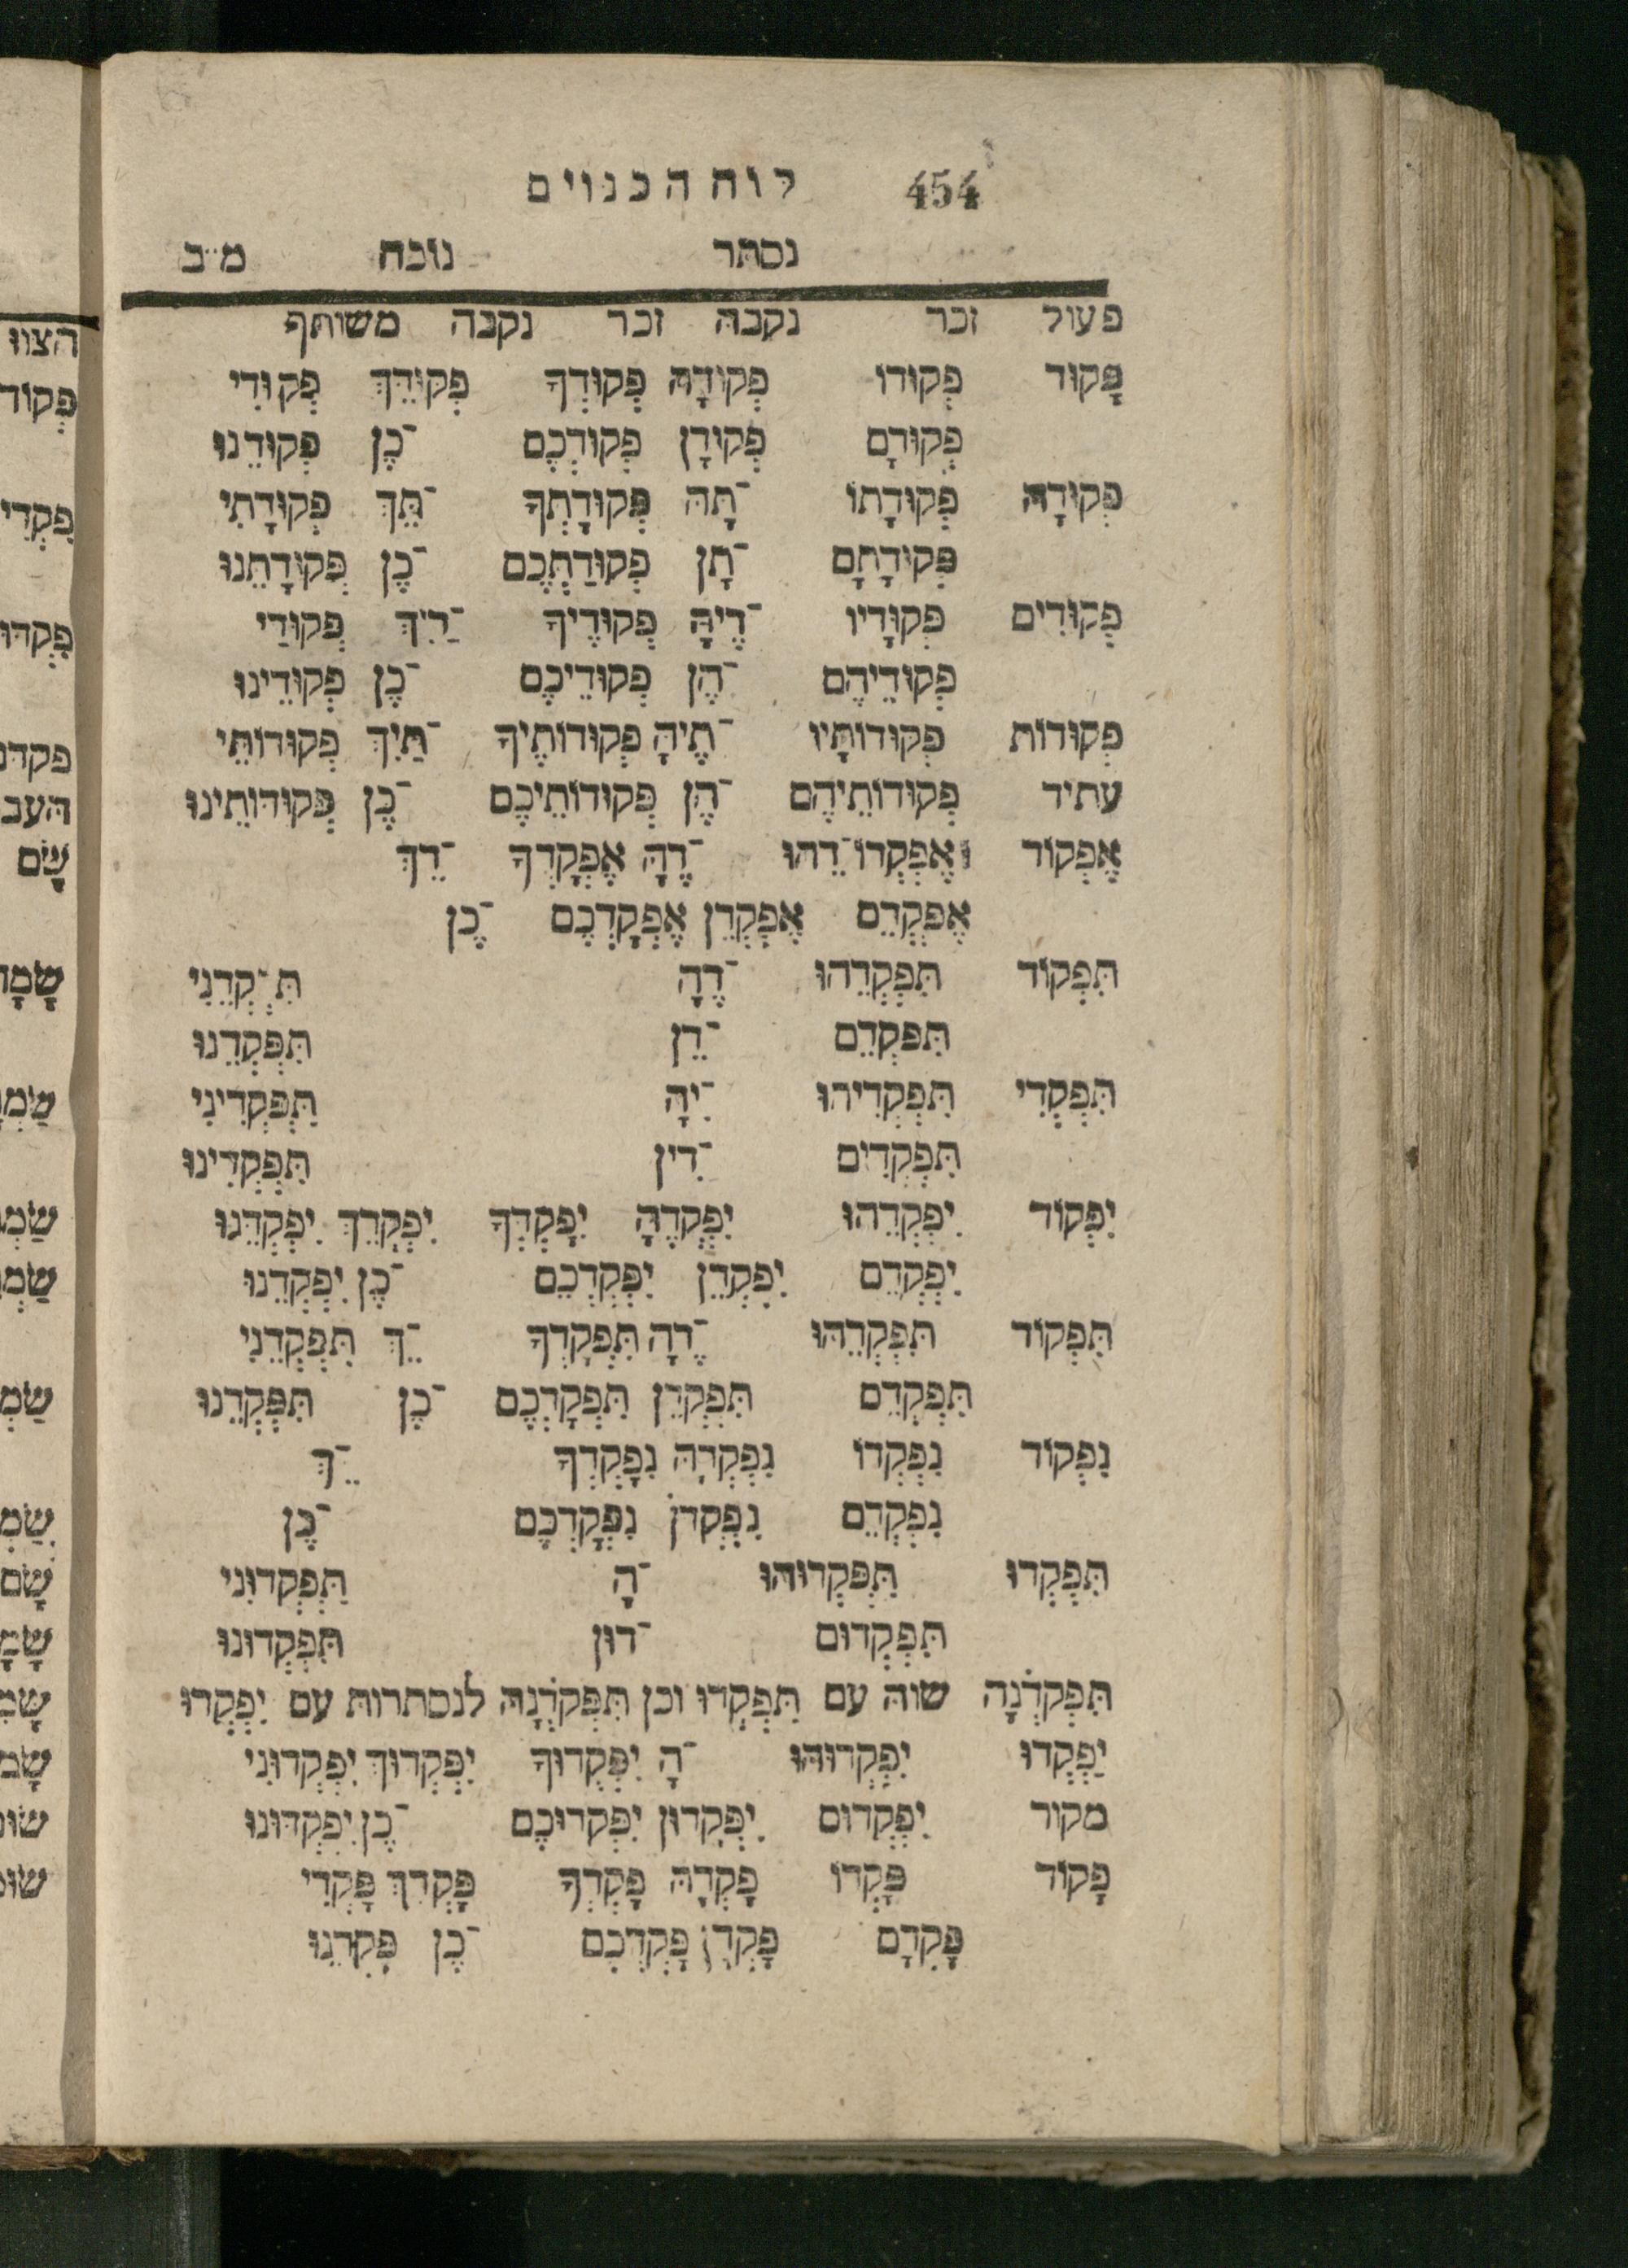 454 לוח הכנוים
נסתר נוכח מ״ב
פעול זכר נקבה זכר נקבה משותף
פָּקוּד פְּקוּדוֹ פְּקוּדָהּ פְּקוּדְךָ פְּקוּדֵךְ פְּקוּדִי
פְּקוּדָם פְּקוּדָן פְּקוּדְכֶם ־כֶן פְּקוּדֵנוּ
פְּקוּדָה פְּקוּדָתוֹ ־תָהּ פְּקוּדָתְךָ ־תֵךְ פְּקוּדָתִי
פְּקוּדָתָם ־תָן פְּקוּדַתְכֶם ־כֶן פְּקוּדָתֵנוּ
פְּקוּדִים פְּקוּדָיו ־דֶיהָ פְּקוּדֶיךָ ־דַיִךְ פְּקוּדַי
פְּקוּדֵיהֶם ־הֶן פְּקוּדֵיכֶם ־כֶן פְּקוּדֵינוּ
פְּקוּדוֹת פְּקוּדוֹתָיו ־תֶיהָ פְּקוּדוֹתֶיךָ ־תַיִךְ פְּקוּדוֹתַי
עתיד פְּקוּדוֹתֵיהֶם ־הֶן פְּקוּדוֹתֵיכֶם ־כֶן פְּקוּדוֹתֵינוּ
אֶפְקוֹד אֶפְקְדוֹ־דֵהוּ ־דֶהָ אֶפְקָדְךָ ־דֵךְ
אֶפְקְדֵם אֶפְקְדֵן אֶפְקָדְכֶם ־כֶן
תִּפְקוֹד תִּפְקְדֵהוּ ־דֶהָ תִּ־קְדֵנִי
תִּפְקְדֵם ־דֵן תִּפְקְדֵנוּ
תִּפְקְדִי תִּפְקְדִיהוּ ־יהָ תִּפְקְדִינִי
תִּפְקְדִים ־דִין תִּפְקְדִינוּ
יִפְקוֹד יִפְקְדֵהוּ יִפְקְדֶהָ יִפְקְדְךָ יִפְקְדֵךְ יִפְקְדֵנוּ
יִפְקְדֵם יִפְקְדֵן יִפְקְדְכֶם ־כֶן יִפְקְדֵנוּ
תִּפְקוֹד תִּפְקְדֵהוּ ־דֶהָ תִּפְקָדְךָ ־ֵךְ תִּפְקְדֵנִי
תִּפְקְדֵם תִּפְקְדֵן תִּפְקָדְכֶם ־כֶן תִּפְקְדֵנוּ
נִפְקוֹד נִפְקְדוֹ נִפְקְדָהּ נִפָקְדְךָ ־ֵךְ
נִפְקְדֵם נִפְקְדֹן נִפְקָדְכֶם ־כֶן
תִּפְקְדוּ תִּפְקְדוּהוּ ־הָ תִּפְקְדוּנִי
תִּפְקְדוּם ־דוּן תִּפְקְדוּנוּ
תִּפְקֹדְנָה שוה עם תִּפְקְדוּ וכן תִּפְקֹדְנָה לנסתרות עם יִפְקְדוּ
יִפְקְדוּ יִפְקְדוּהוּ ־הָ יִפְקְדוּךָ יִפְקְדוּךְ יִפְקְדוּנִי
מקור יִפְקְדוּם יִפְקְדוּן יִפְקְדוּכֶם ־כֶן יִפְקְדוּנוּ
פָּקוֹד פָּקְדוֹ פָּקְדָהּ פָּקְדְךָ פָּקְדֵךְ פָּקְדִי
פָּקְדָם פָּקְדָן פָּקְדְכֶם ־כֶן פָּקְדֵנוּ